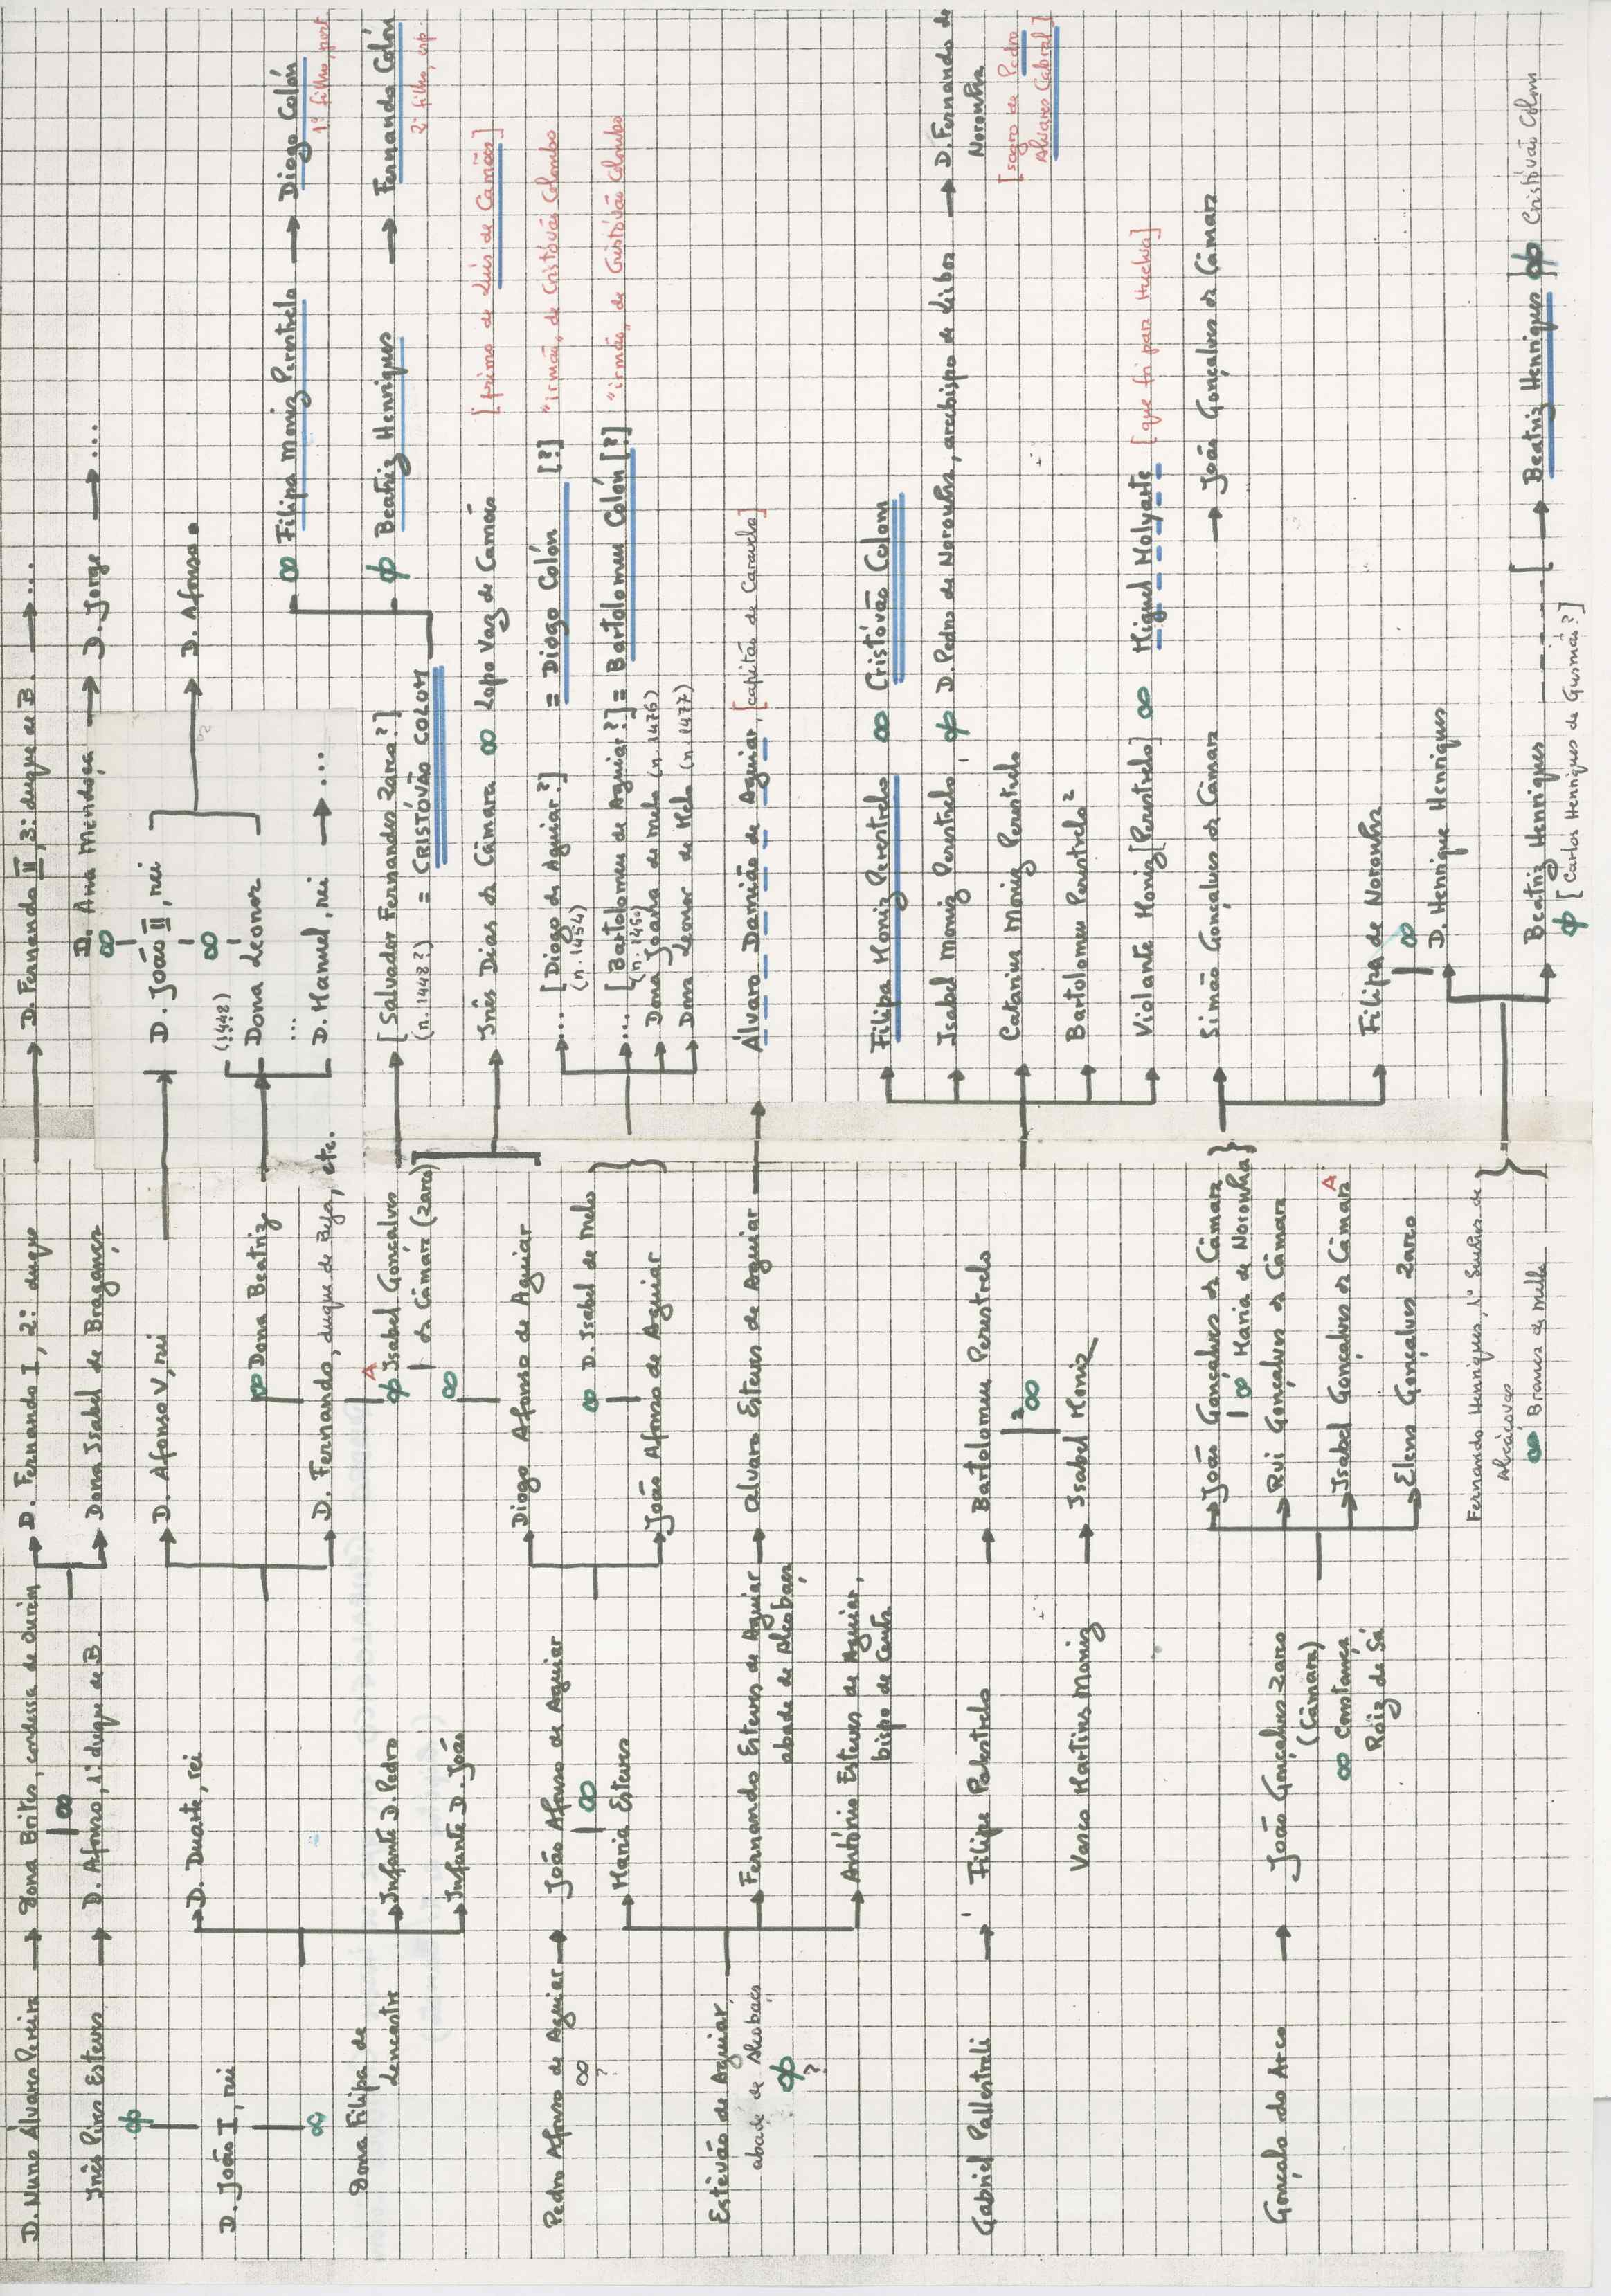 D. Nuno Álvares Pereira → Dona Brites, condessa de Ourém
∞
Inês Pires Esteves → D. Afonso, 1º duque de B.
→ D. Fernando I, 2º duque → D. Fernando II, 3º duque de B. → ...
→ Dona Isabel de Bragança
D. João I, rei
Dona Filipa de
Lencastre
→ D. Duarte, rei
→ Infante D. Pedro
→ Infante D. João
→ D. Afonso V, rei
∞ Dona Beatriz
→ D. Fernando, duque de Beja, etc.
A
Isabel Gonçalves
da Câmara (Zarca)
∞
D. Ana Mendoça → D. Jorge → ...
∞
D. João II, rei
∞
(1448)
Dona Leonor
→ D. Afonso
...
D. Manuel, rei → ...
[Salvador Fernandes Zarca?]
(n. 1448?) = CRISTÓVÃO COLOM
∞ Filipa Moniz Perestrelo → Diogo Colón
1º filho, port
Beatriz Henriques → Fernando Colón
2º filho, esp.
Pedro Afonso de Aguiar → João Afonso de Aguiar
∞
?
∞
Maria Esteves
Diogo Afonso de Aguiar
∞ D. Isabel de Melo
João Afonso de Aguiar
Inês Dias da Câmara ∞ Lopo Vaz de Camões [primo de Luís de Camões]
... [Diogo de Aguiar?] = Diogo Colón [?] "irmão" de Cristóvão Colombo
(n. 1454)
... [Bartolomeu de Aguiar?] = Bartolomeu Colón [?] "irmão" de Cristóvão Colombo
Dona Joana de Melo (n. 1476)
Dona Leonor de Melo (n. 1477)
Estêvão de Aguiar,
abade de Alcobaça
?
→ Fernando Esteves de Aguiar → Álvaro Esteves de Aguiar → Álvaro Damião de Aguiar, [capitão de Caravela]
abade de Alcobaça
António Esteves de Aguiar,
bispo de Ceuta
Gabriel Pallestreli → Filipe Palestrelo → Bartolomeu Perestrelo
2 ∞
Vasco Martins Moniz → Isabel Moniz
Filipa Moniz Perestrelo ∞ Cristóvão Colom
Isabel Moniz Perestrelo D. Pedro de Noronha, arcebispo de Lisboa → D. Fernando de
Noronha
[sogro de Pedro
Álvares Cabral]
Catarina Moniz Perestrelo
Bartolomeu Perestrelo 2
Violante Moniz [Perestrelo] ∞ Miguel Molyarte [que foi para Huelva]
Gonçalo do Arco → João Gonçalves Zarco
(Câmara)
∞ Constança
Róiz de Sá
João Gonçalves da Câmara
∞ Maria de Noronha
Rui Gonçalves da Câmara
Isabel Gonçalves da Câmara A
Elena Gonçalves Zarco
Simão Gonçalves da Câmara → João Gonçalves da Câmara
Filipa de Noronha
∞
D. Henrique Henriques
Fernando Henriques, 1º Senhor de
Alcáçovas
∞ Branca de Mello
Beatriz Henriques
[Carlos Henriques de Gusmão?]
→ Beatriz Henriques Cristóvão Colom